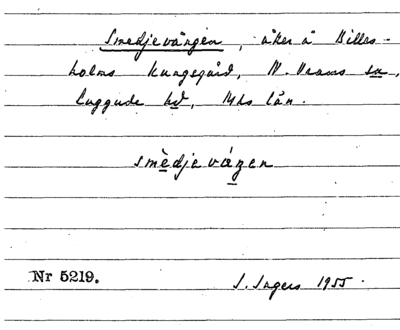 Smedjevången, åker å Billes-
holms kungsgård, N. Vrams sn,
Luggude hd, Mhs län.
smèdjeváŋen
Nr 5219.
S. Ingers 1955.